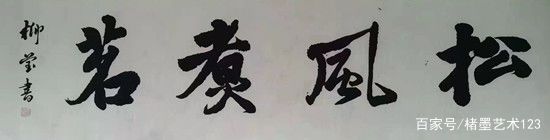 松風煮茗
柳堂書
百家号/楮墨艺术123